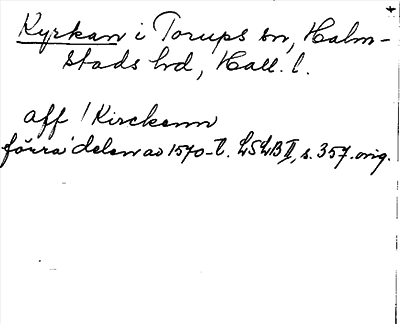 Kyrkan i Torups sn, Halm-
stads hd, Hall. l.
aff / Kirckenn
förra delen av 1570-t. LSLB II, s. 357. orig.